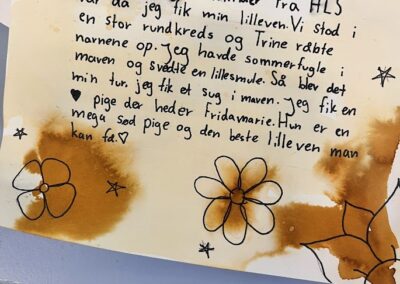 fra HLS
var da jeg fik min lilleven. Vi stod i
en stor rundkreds og Trine råbte
navnene op. Jeg havde sommerfugle i
maven og svedte en lillesmule. Så blev det
min tur, jeg fik et sug i maven. Jeg fik en
♥ pige der heder Fridamarie. Hun er en
mega sød pige og den beste lilleven man
kan få.♡